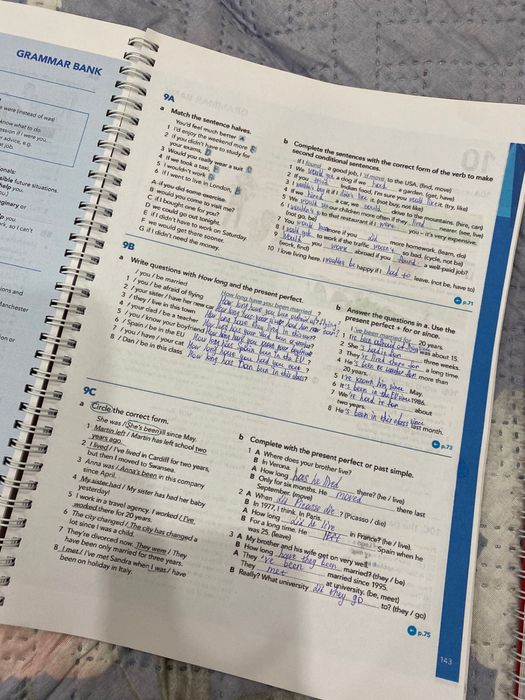 GRAMMAR BANK
9A
a Match the sentence halves.
You'd feel much better A
1 I'd enjoy the weekend more
2 If you didn't study for
your exams
3 Would you really wear a suit
4 If we took a taxi,
5 I wouldn't work
6 If I went to live in London,
A if you did some exercise.
B would you come to visit me?
C if I bought it for you?
D we could go out tonight.
E if I didn't have to work on Saturday.
F we would get there sooner.
G if I didn't need the money.
b Complete the sentences with the correct form of the verb to make
second conditional sentences.
If I found a good job, I move to the USA. (find, move)
1 We
a dog if we had a garden. (get, have)
2 If you tried Indian food, I'm sure you would like it. (try, like)
3 I
it if I
it. (not buy, not like)
4 If we hired a car, we could drive to the mountains. (hire, can)
5 We
our children more often if they
nearer. (see, live)
6 I wouldn't go to that restaurant if I were you – it's very expensive.
(not go, be)
7 You
more if you did more homework. (learn, do)
8 I
to work if the traffic
so bad. (cycle, not be)
9 Would you work abroad if you found a well-paid job?
(work, find)
10 I love living here. I
be happy if I had to leave. (not be, have to)
p.71
9B
a Write questions with How long and the present perfect.
1 / you / be married
How long have you been married ?
2 / you / be afraid of flying
How long have you been afraid of flying?
3 / your sister / have her new car
How long has your sister had her car?
4 / they / live in this town
How long have they
in this town?
5 / your dad / be a teacher
How long has your dad been a teacher
6 / you / know your boyfriend
How long have you
your boyfriend
7 / Spain / be in the EU
How long has Spain been in the EU?
7 / you / have / your cat
How long have you had your cat ?
8 / Dan / be in this class
How long has Dan been in this class?
b Answer the questions in a. Use the
present perfect + for or since.
1 I've been married for 20 years.
2
I was about 15.
3 She's had it for three weeks.
4 They've lived there for a long time.
He's been a teacher for more than
20 years.
5 I've known him since May.
6 It's been in the EU since 1986.
7 We've had it for about
two years.
8 He's been in this class since last month.
p.73
9C
a Circle the correct form.
She was / She's been ill since May.
1 Martin left / Martin has left school two
years ago.
2 I lived / I've lived in Cardiff for two years,
but then I moved to Swansea.
3 Anna was / Anna's been in this company
since April.
4 My sister had / My sister has had her baby
yesterday!
5 I work in a travel agency. I worked / I've
worked there for 20 years.
6 The city changed / The city has changed a
lot since I was a child.
7 They're divorced now. They were / They
have been only married for three years.
8 I met / I've met Sandra when I was / have
been on holiday in Italy.
b Complete with the present perfect or past simple.
1 A Where does your brother live?
B In Verona.
A How long has he lived there? (he / live)
B Only for six months. He moved there last
September. (move)
2 A When did Picasso die ? (Picasso / die)
B In 1977, I think. In Paris.
A How long did he live in France? (he / live).
B For a long time. He left Spain when he
was 25. (leave)
3 A My brother and his wife get on very well
B How long have they been married? (they / be)
A They 've been married since 1995.
They met at university. (be, meet)
B Really? What university did they go to? (they / go)
p.75
143